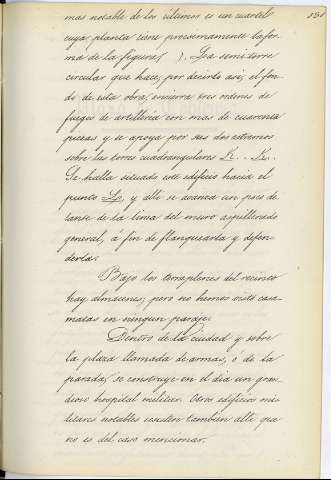 mas notable de los ultimos es un cuartel
cuya planta tiene proximamente la for-
ma de la figura ( ). La semi torre
circular que hace, por decirlo asi, el fon-
do de esta obra, encierra tres ordenes de
fuegos de artilleria con mas de cuarenta
piezas y se apoya por sus dos extremos
sobre las torres cuadrangulares K . . K .
Se halla situado este edificio hacia el
punto L, y alli se avanza un poco de-
lante de la linea del muro aspillerado
general, á fin de flanquearla y defen-
derla.
Bajo los terraplenes del recinto
hay almacenes; pero no hemos visto casa-
matas en ningun paraje.
Dentro de la ciudad y sobre
la plaza llamada de armas, o de la
parada, se construye en el dia un gran-
dioso hospital militar. Otros edificios mi-
litares notables existen tambien alli que
no es del caso mencionar.